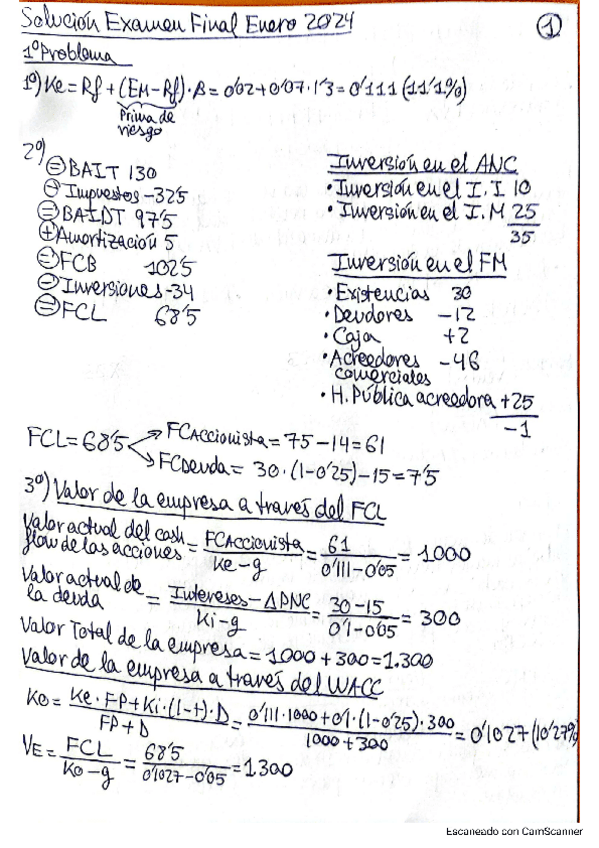 Solución Examen Final Enero 2024
1
1º Problema
1º) Ke = Rf + (EM - Rf) · β = 0'02 + 0'07 · 1'3 = 0'111 (11'1%)
Prima de
riesgo
2º)
(=) BAIT 130
(-) Impuestos -32'5
(=) BAIDT 97'5
(+) Amortización 5
(=) FCB 102'5
(-) Inversiones -34
(=) FCL 68'5
Inversión en el ANC
• Inversión en el I. I. 10
• Inversión en el I. M 25
35
Inversión en el FM
• Existencias 30
• Deudores -12
• Caja +2
• Acreedores -46
comerciales
• H. Pública acreedora +25
-1
FCL = 68'5
FCAccionista = 75 - 14 = 61
FCDeuda = 30 · (1 - 0'25) - 15 = 7'5
3º) Valor de la empresa a través del FCL
Valor actual del cash
flow de las acciones = FCAccionista / Ke - g = 61 / 0'111 - 0'05 = 1000
Valor actual de
la deuda = Intereses - ΔPNC / Ki - g = 30 - 15 / 0'1 - 0'05 = 300
Valor Total de la empresa = 1000 + 300 = 1.300
Valor de la empresa a través del WACC
Ko = Ke · FP + Ki · (1 - t) · D / FP + D = 0'111 · 1000 + 0'1 · (1 - 0'25) · 300 / 1000 + 300 = 0'1027 (10'27%
VE = FCL / Ko - g = 68'5 / 0'1027 - 0'05 = 1300
Escaneado con CamScanner